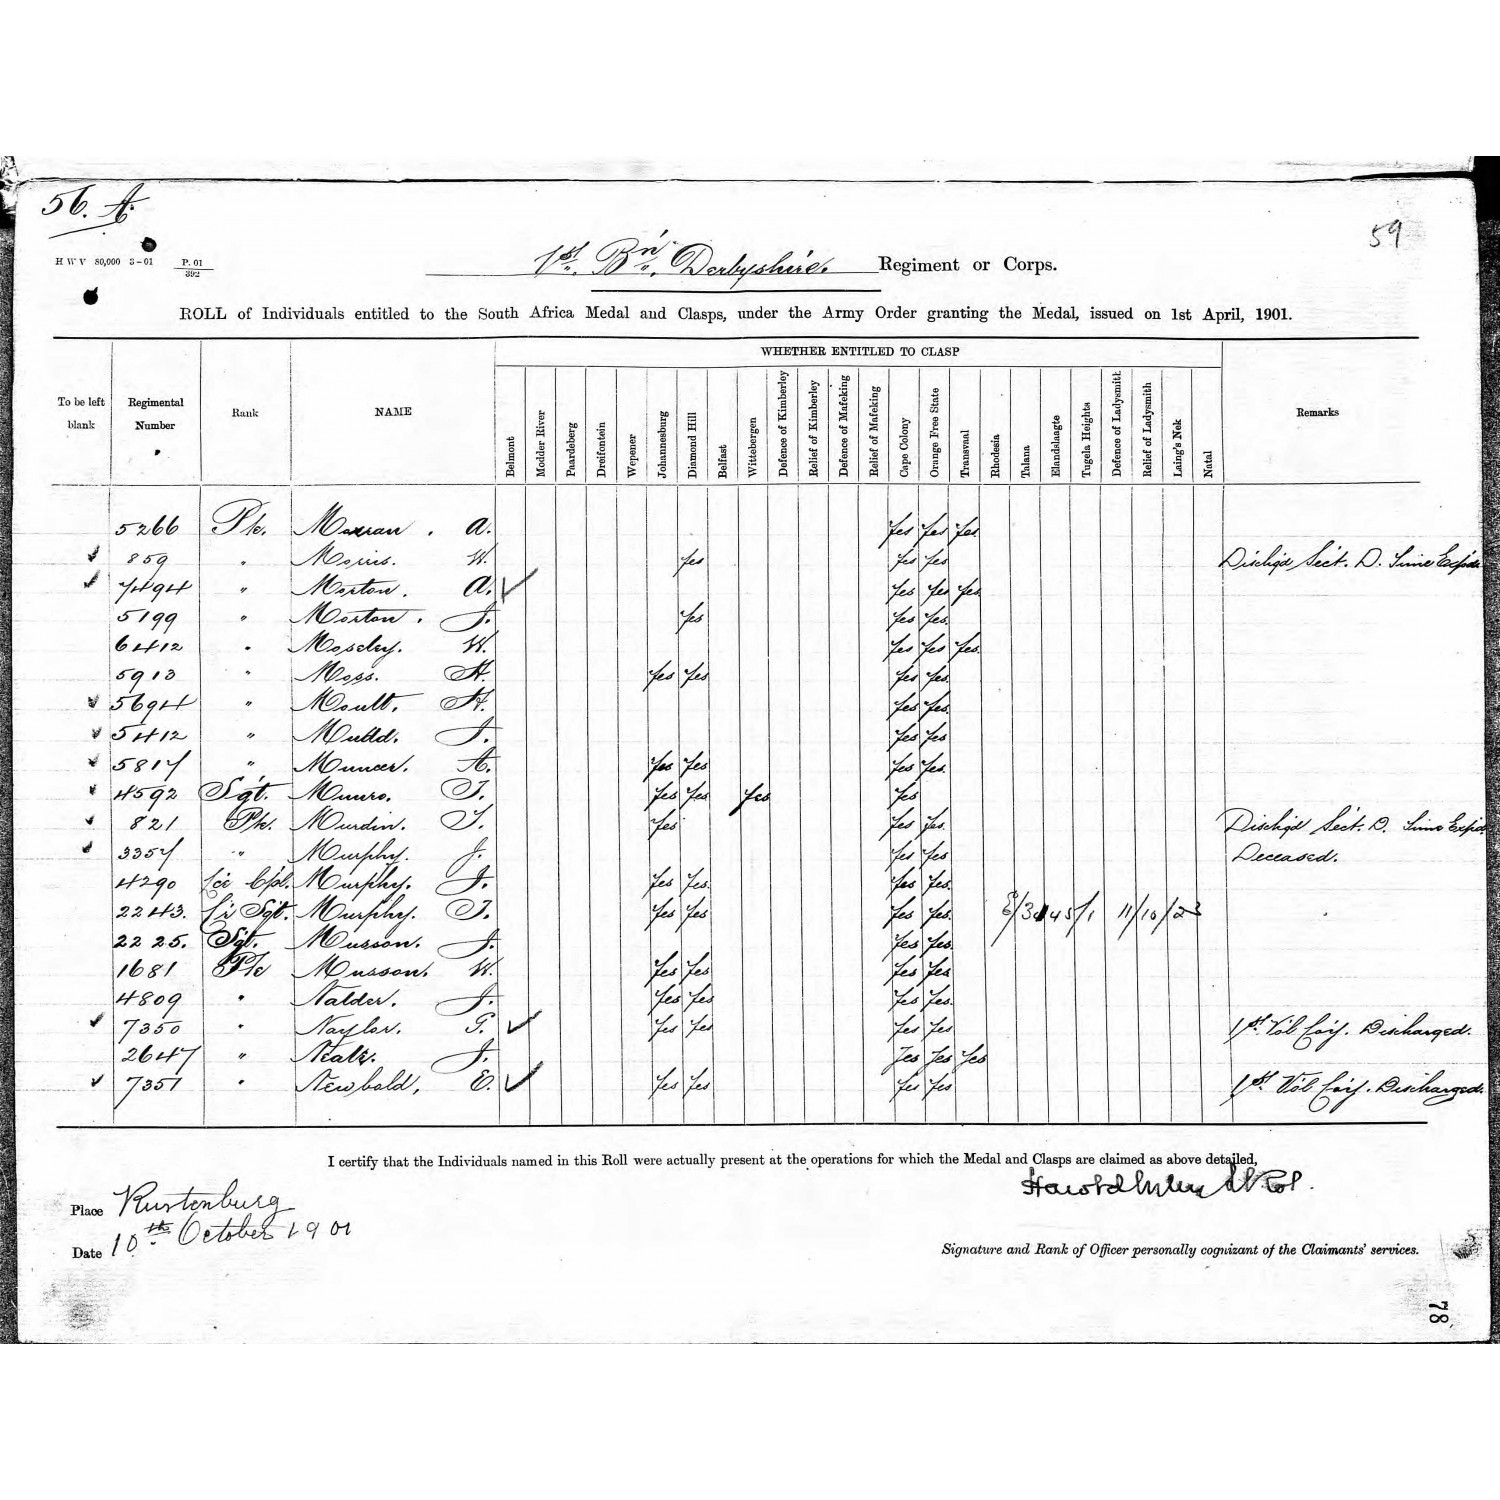 56. A.
59
H W V 80,000 3-01 P. 01 / 392
1st. Bn. Derbyshire. Regiment or Corps.
ROLL of Individuals entitled to the South Africa Medal and Clasps, under the Army Order granting the Medal, issued on 1st April, 1901.
WHETHER ENTITLED TO CLASP
To be left blank Regimental Number Rank NAME Belmont Modder River Paardeberg Dreifontein Wepener Johannesburg Diamond Hill Belfast Wittebergen Defence of Kimberley Relief of Kimberley Defence of Mafeking Relief of Mafeking Cape Colony Orange Free State Transvaal Rhodesia Talana Elandslaagte Tugela Heights Defence of Ladysmith Relief of Ladysmith Laing's Nek Natal Remarks
5266 Pte. A. Yes Yes Yes
859 " Morris. W. Yes Yes Yes Dischgd Sect. D. Time Expd
7494 " Morton. A. Yes Yes Yes
5199 " Morton. J. Yes Yes Yes.
6412 " Moseley. W. Yes Yes Yes.
5913 " Moss. H. Yes Yes Yes Yes.
5694 " Moult. H. Yes Yes.
5412 " Mudd. J. Yes Yes
5817 " Muncer. A. Yes Yes Yes Yes.
4592 Sgt. Munro. T. Yes Yes Yes Yes
821 Pte. Murdin. T. Yes Yes Yes. Dischgd Sect. D. Time Expd
3357 " Murphy. J. Yes Yes Deceased.
4290 Lce Cpl. Murphy. J. Yes Yes. Yes Yes.
2243. Sgt. Murphy. T. Yes Yes Yes Yes. 11/10/23
2225. Sgt. Musson. J. Yes Yes.
1681 Pte Musson. W. Yes Yes Yes Yes
4809 " Nalder. J. Yes Yes Yes Yes.
7350 " Naylor. G. Yes Yes Yes Yes 1st. Vol Coy. Discharged.
2647 " Neale. J. Yes Yes Yes
7351 " Newbold, E. Yes Yes Yes Yes 1st. Vol Coy. Discharged.
I certify that the Individuals named in this Roll were actually present at the operations for which the Medal and Clasps are claimed as above detailed,
Place Rustenburg
Date 10th October 1901
Signature and Rank of Officer personally cognizant of the Claimants' services.
78